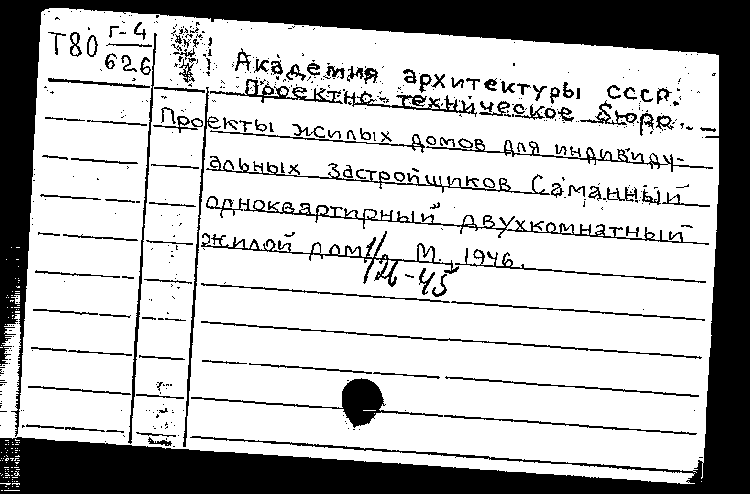 Т80 Г-4
626
Академия архитектуры СССР.
Проектно-техническое бюро.
Проекты жилых домов для индивиду-
альных застройщиков Саманный
одноквартирный двухкомнатный
жилой дом М., 1946.
1/26-45